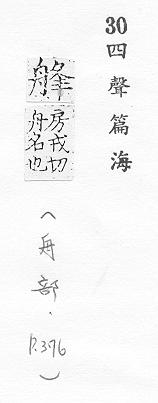 30 四聲篇海
艂
房戎切
舟名也
（舟部．P.376）